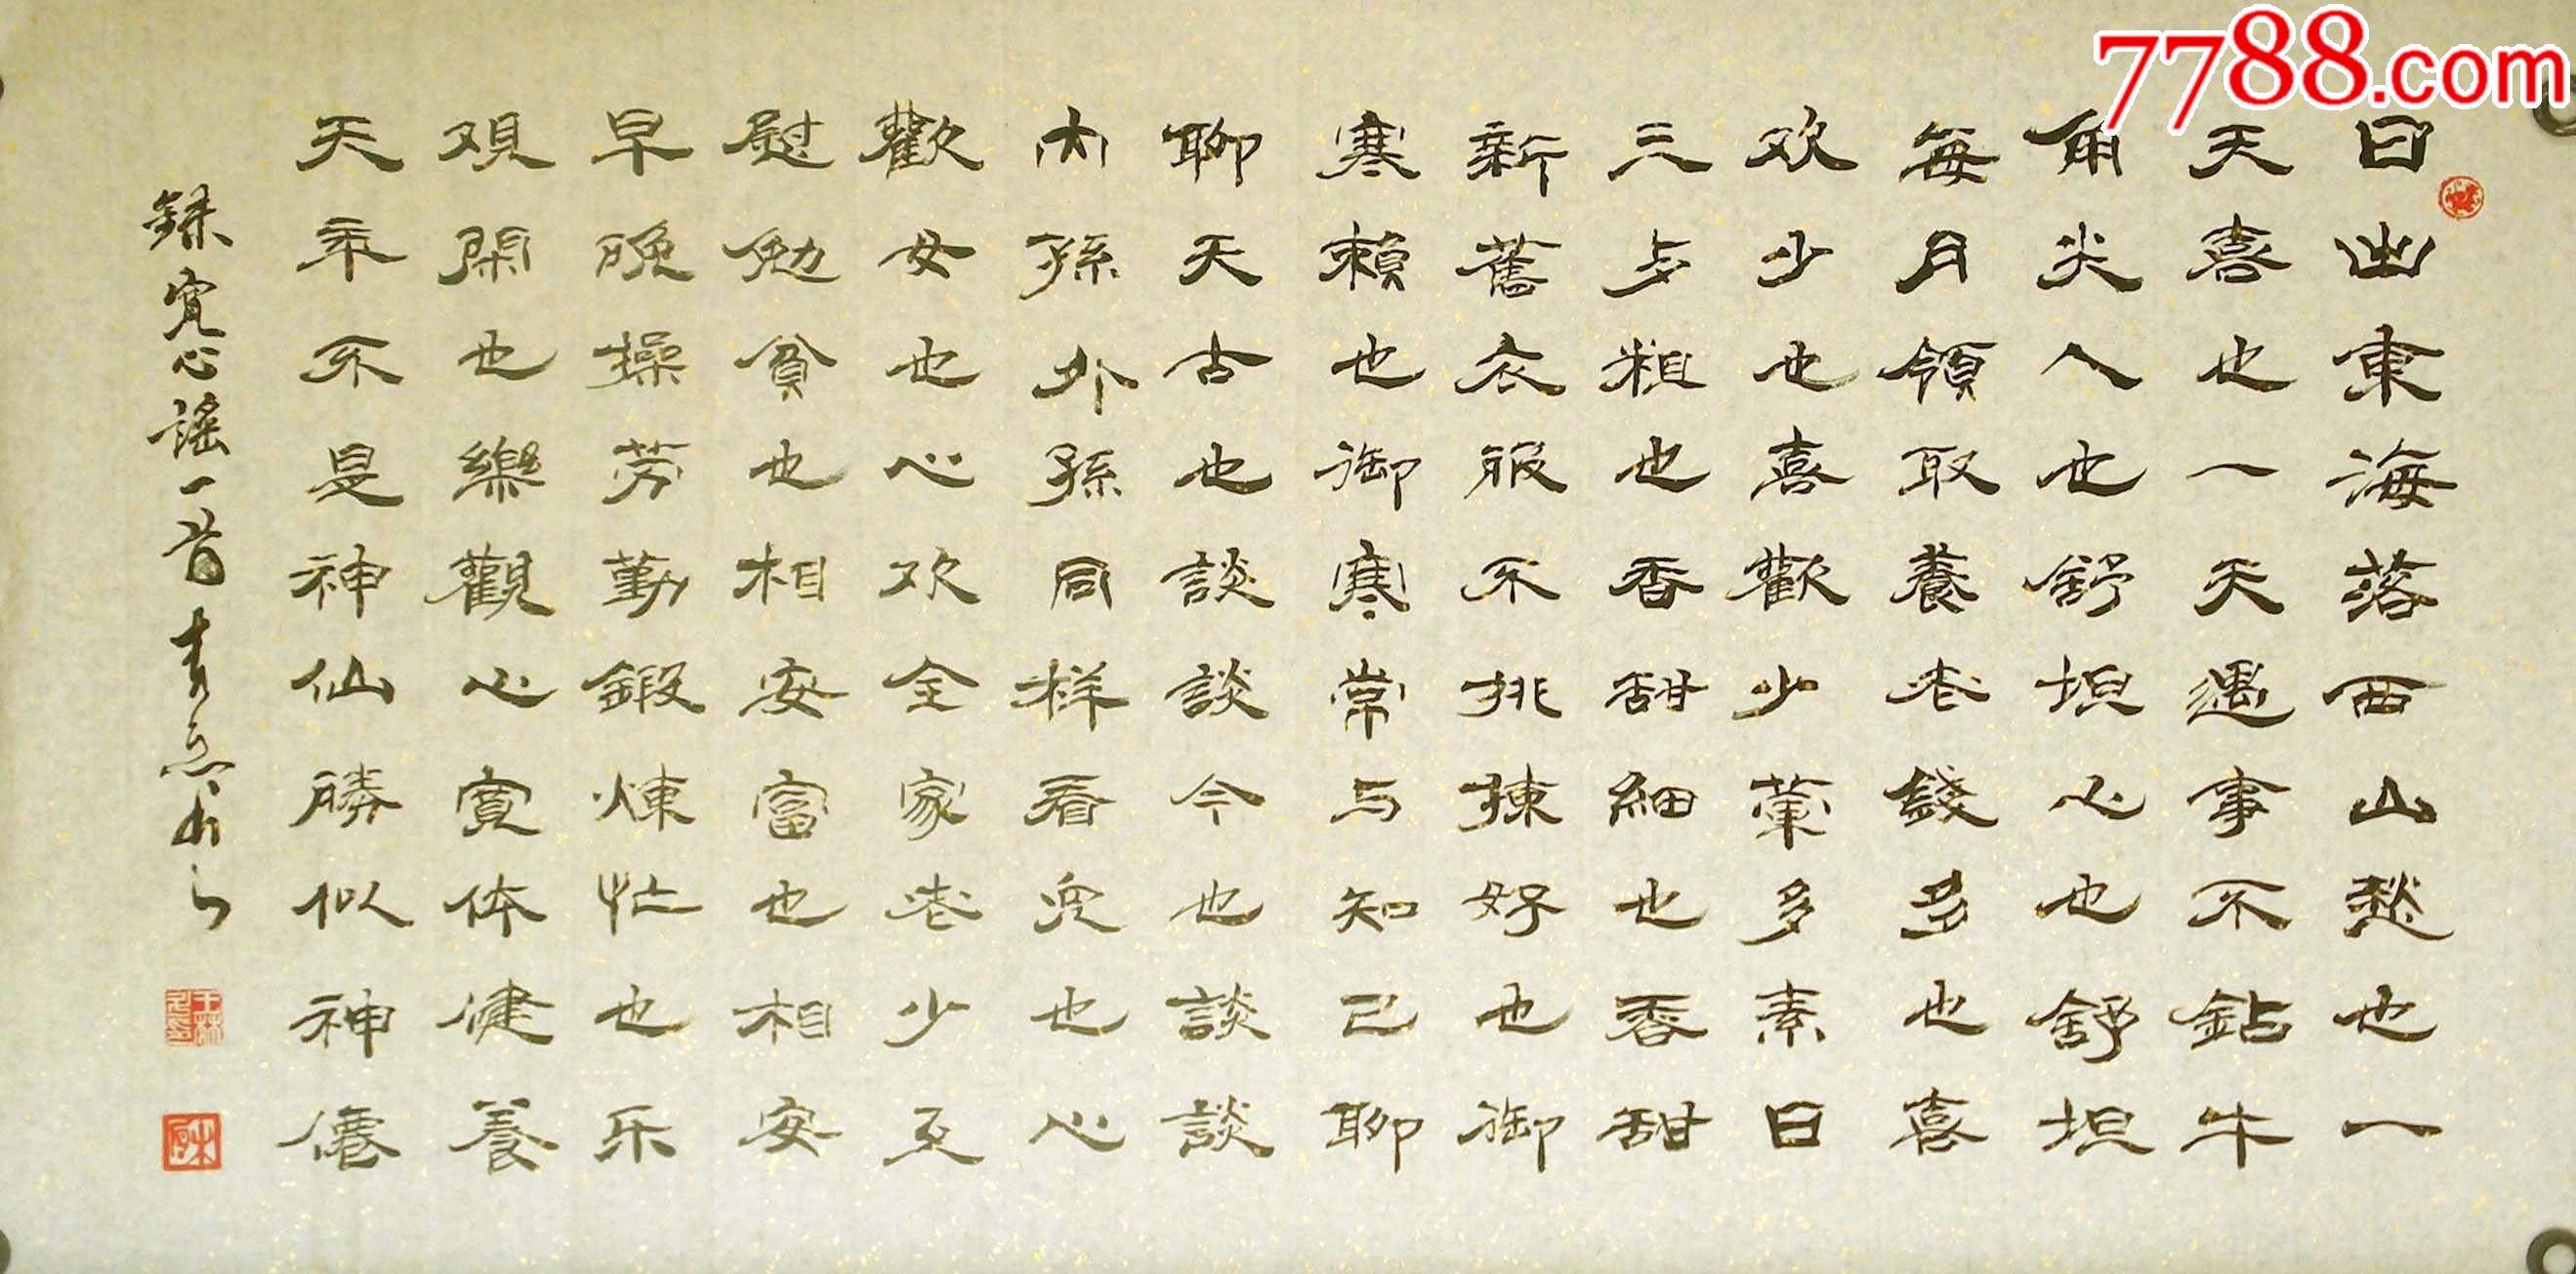 7788.com
日出東海落西山愁也一
天喜也一天遇事不鉆牛
角尖人也舒坦心也舒坦
每月領取養老錢多也喜
欢少也喜歡少葷多素日
三步粗也香甜細也香甜
新舊衣服不挑揀好也御
寒賴也御寒常与知己聊
聊天古也談談今也談談
内孫外孫同样看兒也心
歡女也心欢全家老少互
慰勉貧也相安富也相安
早晚操劳勤鍛煉忙也乐
观閑也樂觀心寬体健養
天年不是神仙勝似神僊
録寬心謠一首